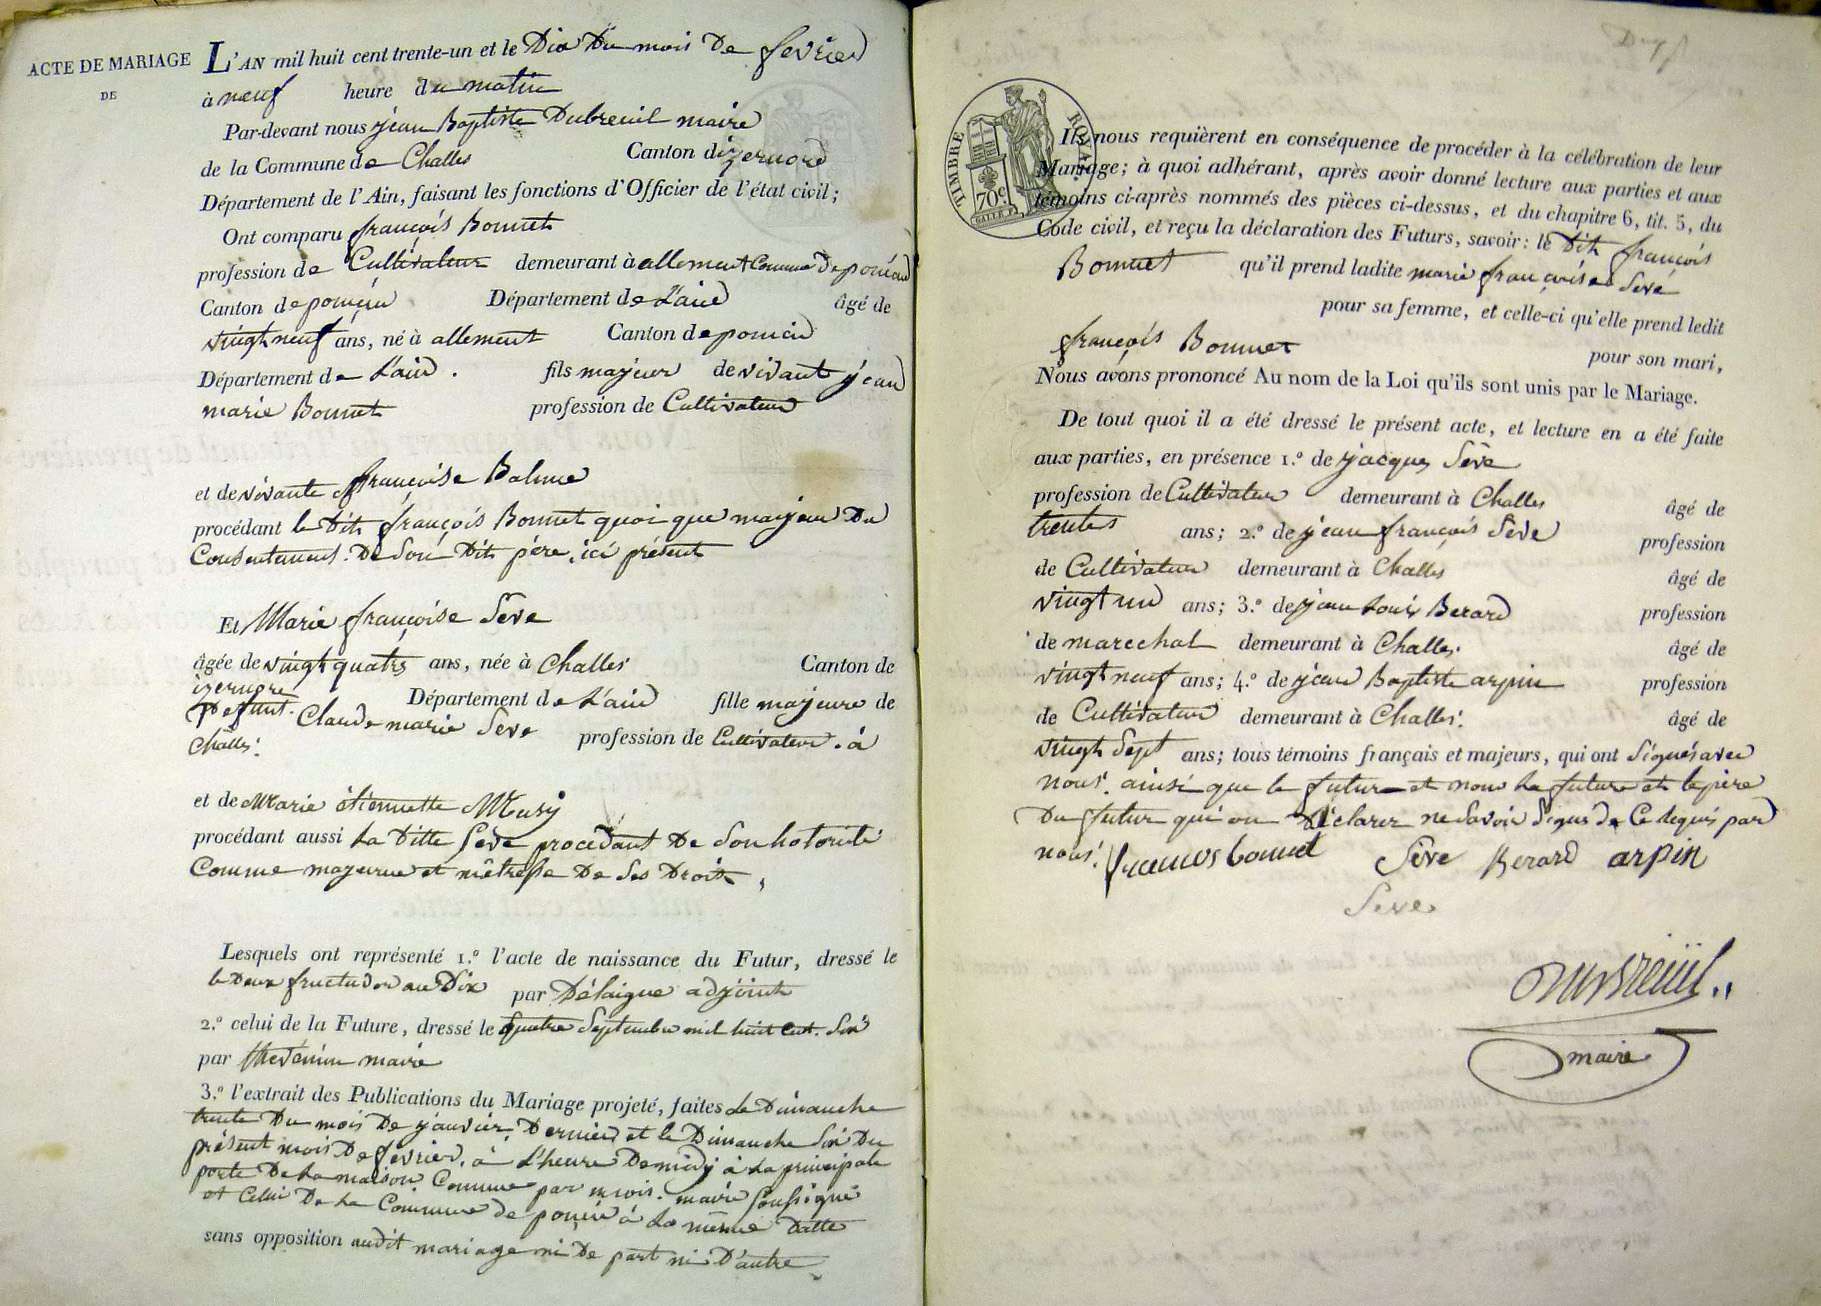 ACTE DE MARIAGE
DE
L'AN mil huit cent trente-un et le Dix Du mois De fevrier
à neuf heure du matin
Par-devant nous jean Baptiste Dubreuil maire
de la Commune de Challes Canton dizernore
Département de l'Ain, faisant les fonctions d'Officier de l'état civil;
Ont comparu françois Bonnet
profession de Cultivateur demeurant à allement Commune De poncin
Canton de poncin Département de L'ain âgé de
vingt neuf ans, né à allement Canton de poncin
Département de L'ain . fils majeur de vivant jean
marie Bonnet profession de Cultivateur
et de vivante françoise Balme
procédant le Dit françois Bonnet quoi que majeur Du
Consentement. De Son Dit père. ici présent
Et Marie françoise Seve
âgée de vingt quatre ans, née à Challes Canton de
izernore Département de L'ain fille majeure de
Defunt. Claude marie Seve profession de Cultivateur. à
Challes.
et de Marie étiennette Musy
procédant aussi La Ditte Seve procedant De Son hotorité
Comme majeure et mêtresse De Ses Droits,
Lesquels ont représenté 1.º l'acte de naissance du Futur, dressé le
le Deux fructidor an Dix par Délaigue adjoint
2.º celui de la Future, dressé le quatre Septembre mil huit Cent. Six
par thevenin maire
3.º l'extrait des Publications du Mariage projeté, faites Le Dimanche
trente Du mois De janvier Dernier et le Dimanche Six Du
présent mois De fevrier. à L'heure De midy à La principale
porte De La maison Commune par moi. maire Soussigné
et Celui De La Commune de poncin à La même Datte
sans opposition audit mariage ni De part ni D'autre
TIMBRE ROYAL
70c
Ils nous requièrent en conséquence de procéder à la célébration de leur
Mariage; à quoi adhérant, après avoir donné lecture aux parties et aux
témoins ci-après nommés des pièces ci-dessus, et du chapitre 6, tit. 5, du
Code civil, et reçu la déclaration des Futurs, savoir: le Dit françois
Bonnet qu'il prend ladite marie françoise Seve
pour sa femme, et celle-ci qu'elle prend ledit
françois Bonnet pour son mari,
Nous avons prononcé Au nom de la Loi qu'ils sont unis par le Mariage.
De tout quoi il a été dressé le présent acte, et lecture en a été faite
aux parties, en présence 1.º de jacques Sève
profession de Cultivateur demeurant à Challes âgé de
trente ans; 2.º de jean françois Seve profession
de Cultivateur demeurant à Challes âgé de
vingt un ans; 3.º de jean Louis Berard profession
de marechal demeurant à Challes. âgé de
vingt neuf ans; 4.º de jean Baptiste arpin profession
de Cultivateur demeurant à Challes. âgé de
vingt Sept ans; tous témoins français et majeurs, qui ont Signés avec
nous. ainsi que le futur et non La future et le père
Du futur qui on Déclarer ne Savoir Signer De Ce requis par
nous. francois bonnet Sève Berard arpin
Seve
Dubreuil
maire